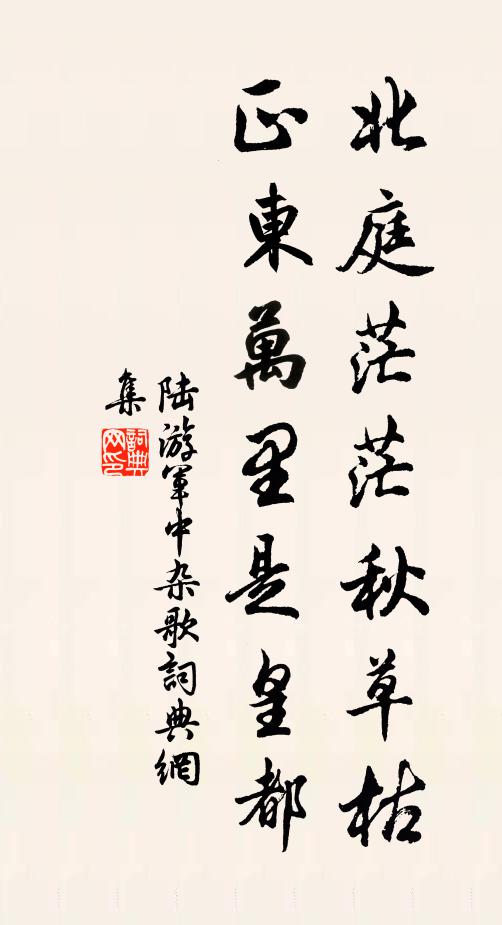 北庭茫茫秋草枯
正東萬里是皇都
陸游軍中杂歌詞典網
集
詞典
网印